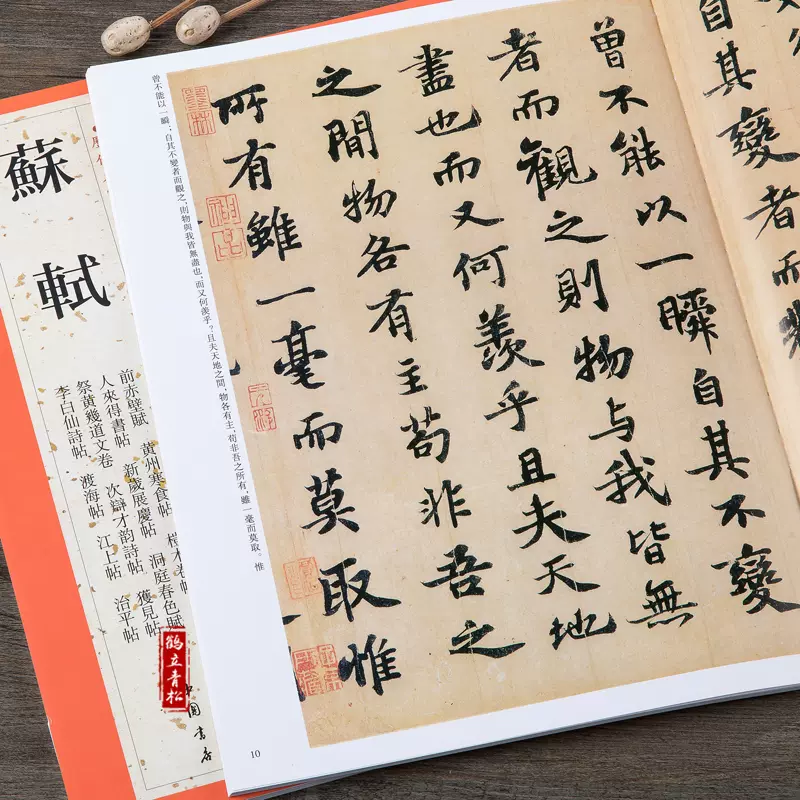 自其變者而
曾不能以一瞬自其不變
者而觀之則物与我皆無
盡也而又何羨乎且夫天地
之間物各有主苟非吾之
所有雖一毫而莫取惟
曾不能以一瞬；自其不變者而觀之，則物與我皆無盡也，而又何羨乎？且夫天地之間，物各有主，苟非吾之所有，雖一毫而莫取。惟
10
蘇軾
前赤壁賦 黃州寒食帖
人來得書帖 新歲展慶帖 洞庭春色賦
祭黃幾道文卷 次辯才韵詩帖 獲見帖
李白仙詩帖 渡海帖 江上帖 治平帖
鶴立青松
中國書店